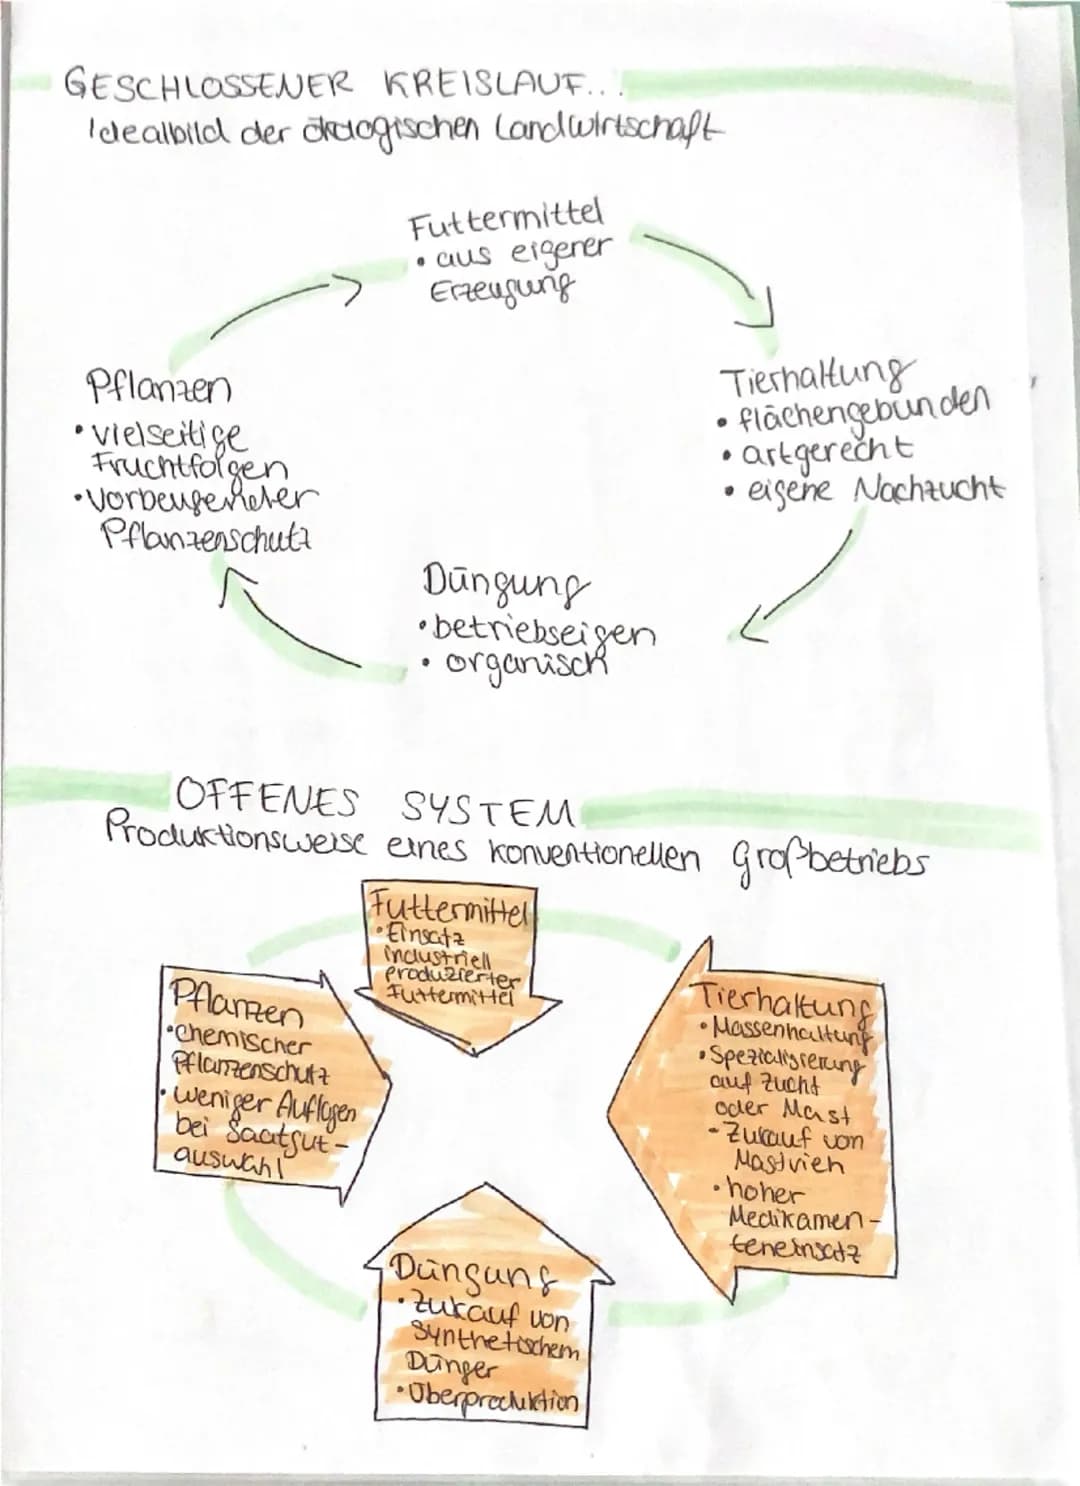 GESCHLOSSENER KREISLAUF...
Idealbild der ökologischen Landwirtschaft
Futtermittel
• aus eigener
Erzeugung
Tierhaltung
• flächengebunden
• artgerecht
• eigene Nachzucht
Düngung
• betriebseigen
• organisch
Pflanzen
• vielseitige
Fruchtfolgen
• vorbeugender
Pflanzenschutz
OFFENES SYSTEM
Produktionsweise eines konventionellen Großbetriebs
Futtermittel
• Einsatz
industriell
produzierter
Futtermittel
Tierhaltung
• Massenhaltung
• Spezialisierung
auf Zucht
oder Mast
• Zukauf von
Mastvieh
• hoher
Medikamen-
teneinsatz
Düngung
• Zukauf von
synthetischem
Dünger
• Überproduktion
Pflanzen
• chemischer
Pflanzenschutz
• weniger Auflagen
bei Saatgut-
auswahl